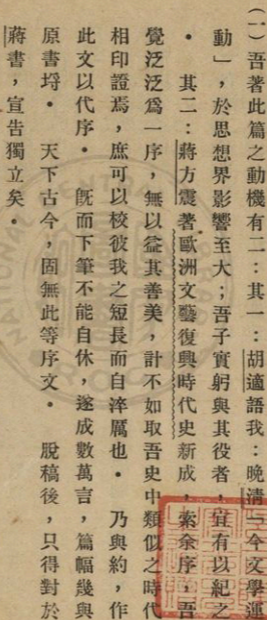 (一)吾著此篇之動機有二：其一：胡適語我：晚清「今文學運
動」，於思想界影響至大；吾子實躬與其役者，宜有以紀之
。其二：蔣方震著歐洲文藝復興時代史新成，索余序，吾
覺泛泛爲一序，無以益其善美，計不如取吾史中類似之時代
相印證焉，庶可以校彼我之短長而自淬厲也。乃與約，作
此文以代序。既而下筆不能自休，遂成數萬言，篇幅幾與
原書埒。天下古今，固無此等序文。脫稿後，只得對於
蔣書，宣告獨立矣。